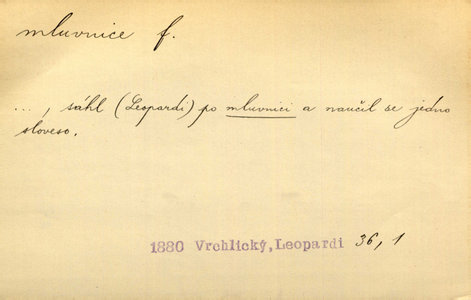 mluvnice f.
..., sáhl (Leopardi) po mluvnici a naučil se jedno
sloveso.
1880 Vrchlický, Leopardi 36, 1